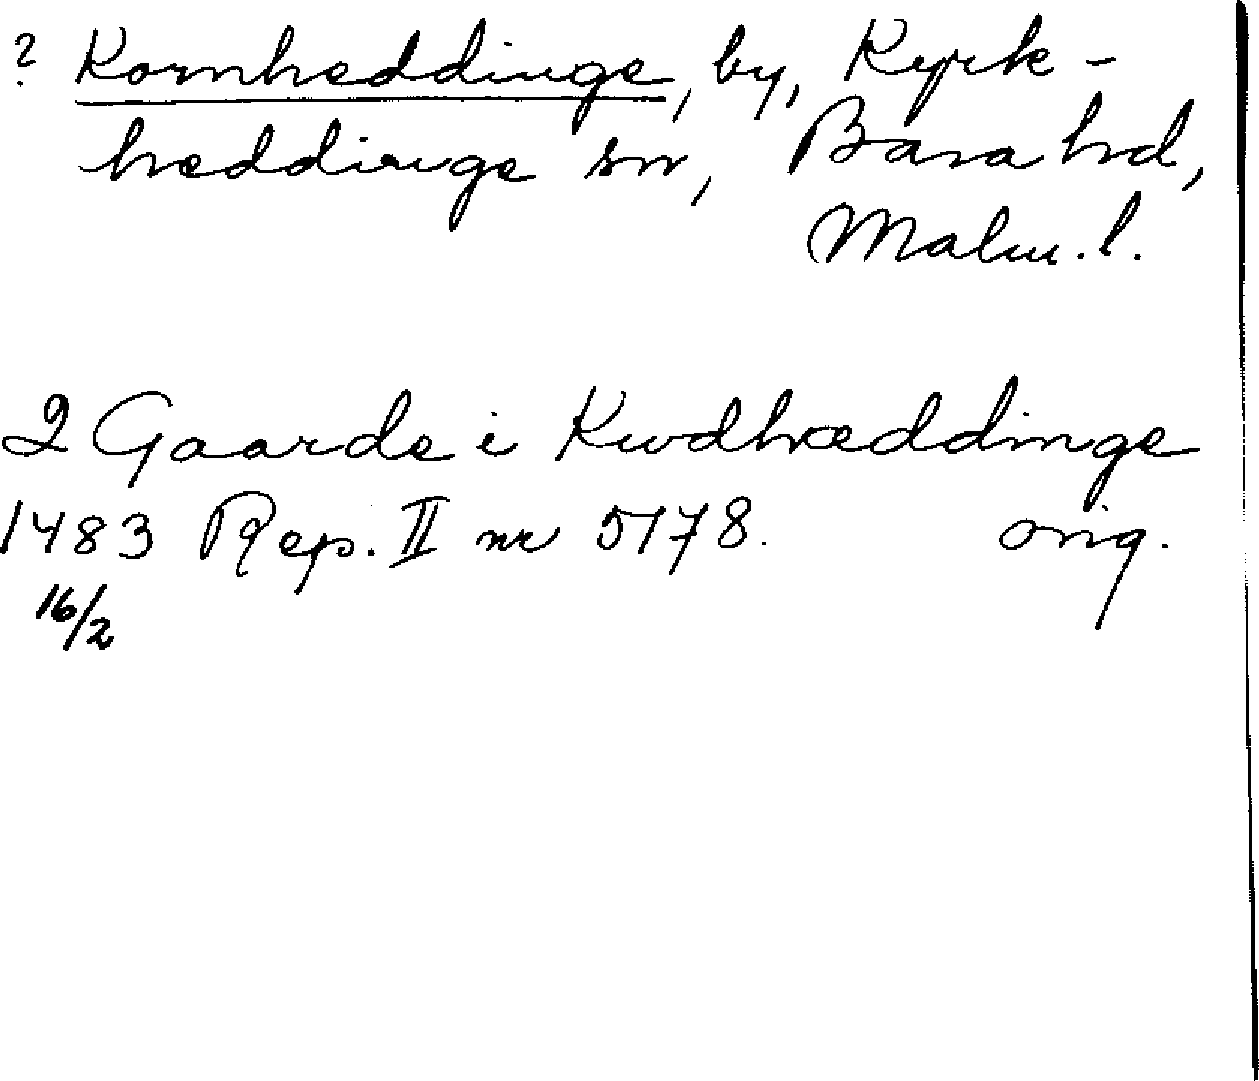 ? Kornheddinge, by, Kyrk-
heddinge sn, Bara hd,
Malm. l.
2 Gaarde i Kwdhæddinge
1483 Rep. II nr 5178. orig.
16/2